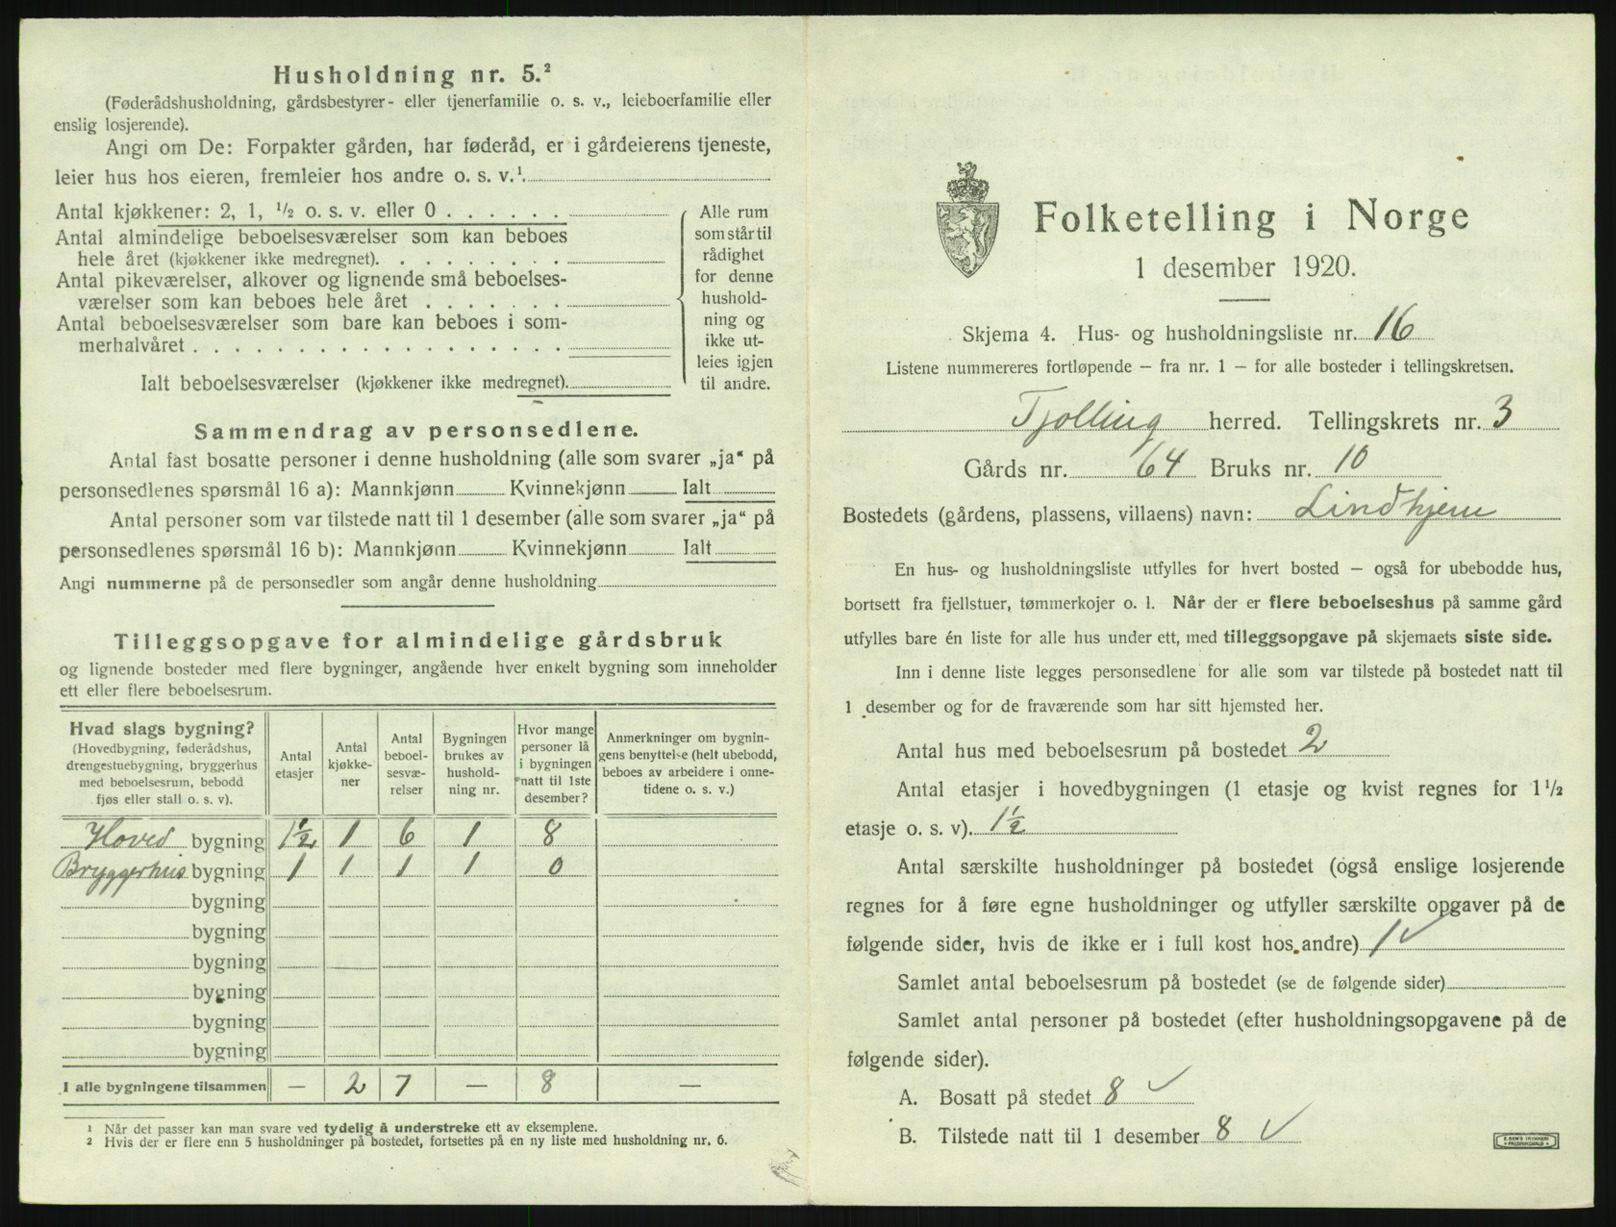 Husholdning nr. 5.²
(Føderådshusholdning, gårdsbestyrer- eller tjenerfamilie o. s. v., leieboerfamilie eller
enslig losjerende).
Angi om De: Forpakter gården, har føderåd, er i gårdeierens tjeneste,
leier hus hos eieren, fremleier hos andre o. s. v.¹.
Antal kjøkkener: 2, 1, ½ o. s. v. eller 0 . . . . . .
Antal almindelige beboelsesværelser som kan beboes
hele året (kjøkkener ikke medregnet). . . . . . . . .
Antal pikeværelser, alkover og lignende små beboelses-
værelser som kan beboes hele året . . . . . . .
Antal beboelsesværelser som bare kan beboes i som-
merhalvåret . . . . . . . . . . . . . . . . . .
Ialt beboelsesværelser (kjøkkener ikke medregnet).
Alle rum
som står til
rådighet
for denne
hushold-
ning og
ikke ut-
leies igjen
til andre.
Sammendrag av personsedlene.
Antal fast bosatte personer i denne husholdning (alle som svarer „ja“ på
personsedlenes spørsmål 16 a): Mannkjønn Kvinnekjønn Ialt
Antal personer som var tilstede natt til 1 desember (alle som svarer „ja“ på
personsedlenes spørsmål 16 b): Mannkjønn Kvinnekjønn Ialt
Angi nummerne på de personsedler som angår denne husholdning
Tilleggsopgave for almindelige gårdsbruk
og lignende bosteder med flere bygninger, angående hver enkelt bygning som inneholder
ett eller flere beboelsesrum.
Hvad slags bygning?
(Hovedbygning, føderådshus,
drengestuebygning, bryggerhus
med beboelsesrum, bebodd
fjøs eller stall o. s. v).
Antal
etasjer
Antal
kjøkke-
ner
Antal
beboel-
sesvæ-
relser
Bygningen
brukes av
hushold-
ning nr.
Hvor mange
personer lå
i bygningen
natt til 1ste
desember?
Anmerkninger om bygnin-
gens benyttelse (helt ubebodd,
beboes av arbeidere i onne-
tidene o. s. v.)
Hoved bygning 1½ 1 6 1 8
Bryggerhus bygning 1 1 1 1 0
bygning
bygning
bygning
bygning
bygning
bygning
I alle bygningene tilsammen — 2 7 — 8 —
¹ Når det passer kan man svare ved tydelig å understreke ett av eksemplene.
² Hvis der er flere enn 5 husholdninger på bostedet, fortsettes på en ny liste med husholdning nr. 6.
Folketelling i Norge
1 desember 1920.
Skjema 4. Hus- og husholdningsliste nr. 16
Listene nummereres fortløpende – fra nr. 1 – for alle bosteder i tellingskretsen.
Tjølling herred. Tellingskrets nr. 3
Gårds nr. 64 Bruks nr. 10
Bostedets (gårdens, plassens, villaens) navn: Lindhjem
En hus- og husholdningsliste utfylles for hvert bosted – også for ubebodde hus,
bortsett fra fjellstuer, tømmerkojer o. l. Når der er flere beboelseshus på samme gård
utfylles bare én liste for alle hus under ett, med tilleggsopgave på skjemaets siste side.
Inn i denne liste legges personsedlene for alle som var tilstede på bostedet natt til
1 desember og for de fraværende som har sitt hjemsted her.
Antal hus med beboelsesrum på bostedet 2
Antal etasjer i hovedbygningen (1 etasje og kvist regnes for 1½
etasje o. s. v). 1½
Antal særskilte husholdninger på bostedet (også enslige losjerende
regnes for å føre egne husholdninger og utfyller særskilte opgaver på de
følgende sider, hvis de ikke er i full kost hos andre) 1 ✓
Samlet antal beboelsesrum på bostedet (se de følgende sider)
Samlet antal personer på bostedet (efter husholdningsopgavene på de
følgende sider).
A. Bosatt på stedet 8 ✓
B. Tilstede natt til 1 desember 8 ✓